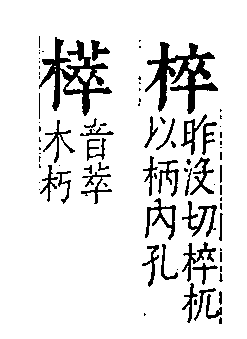 椊
昨沒切椊杌
以柄內孔
㯜
音萃
木朽